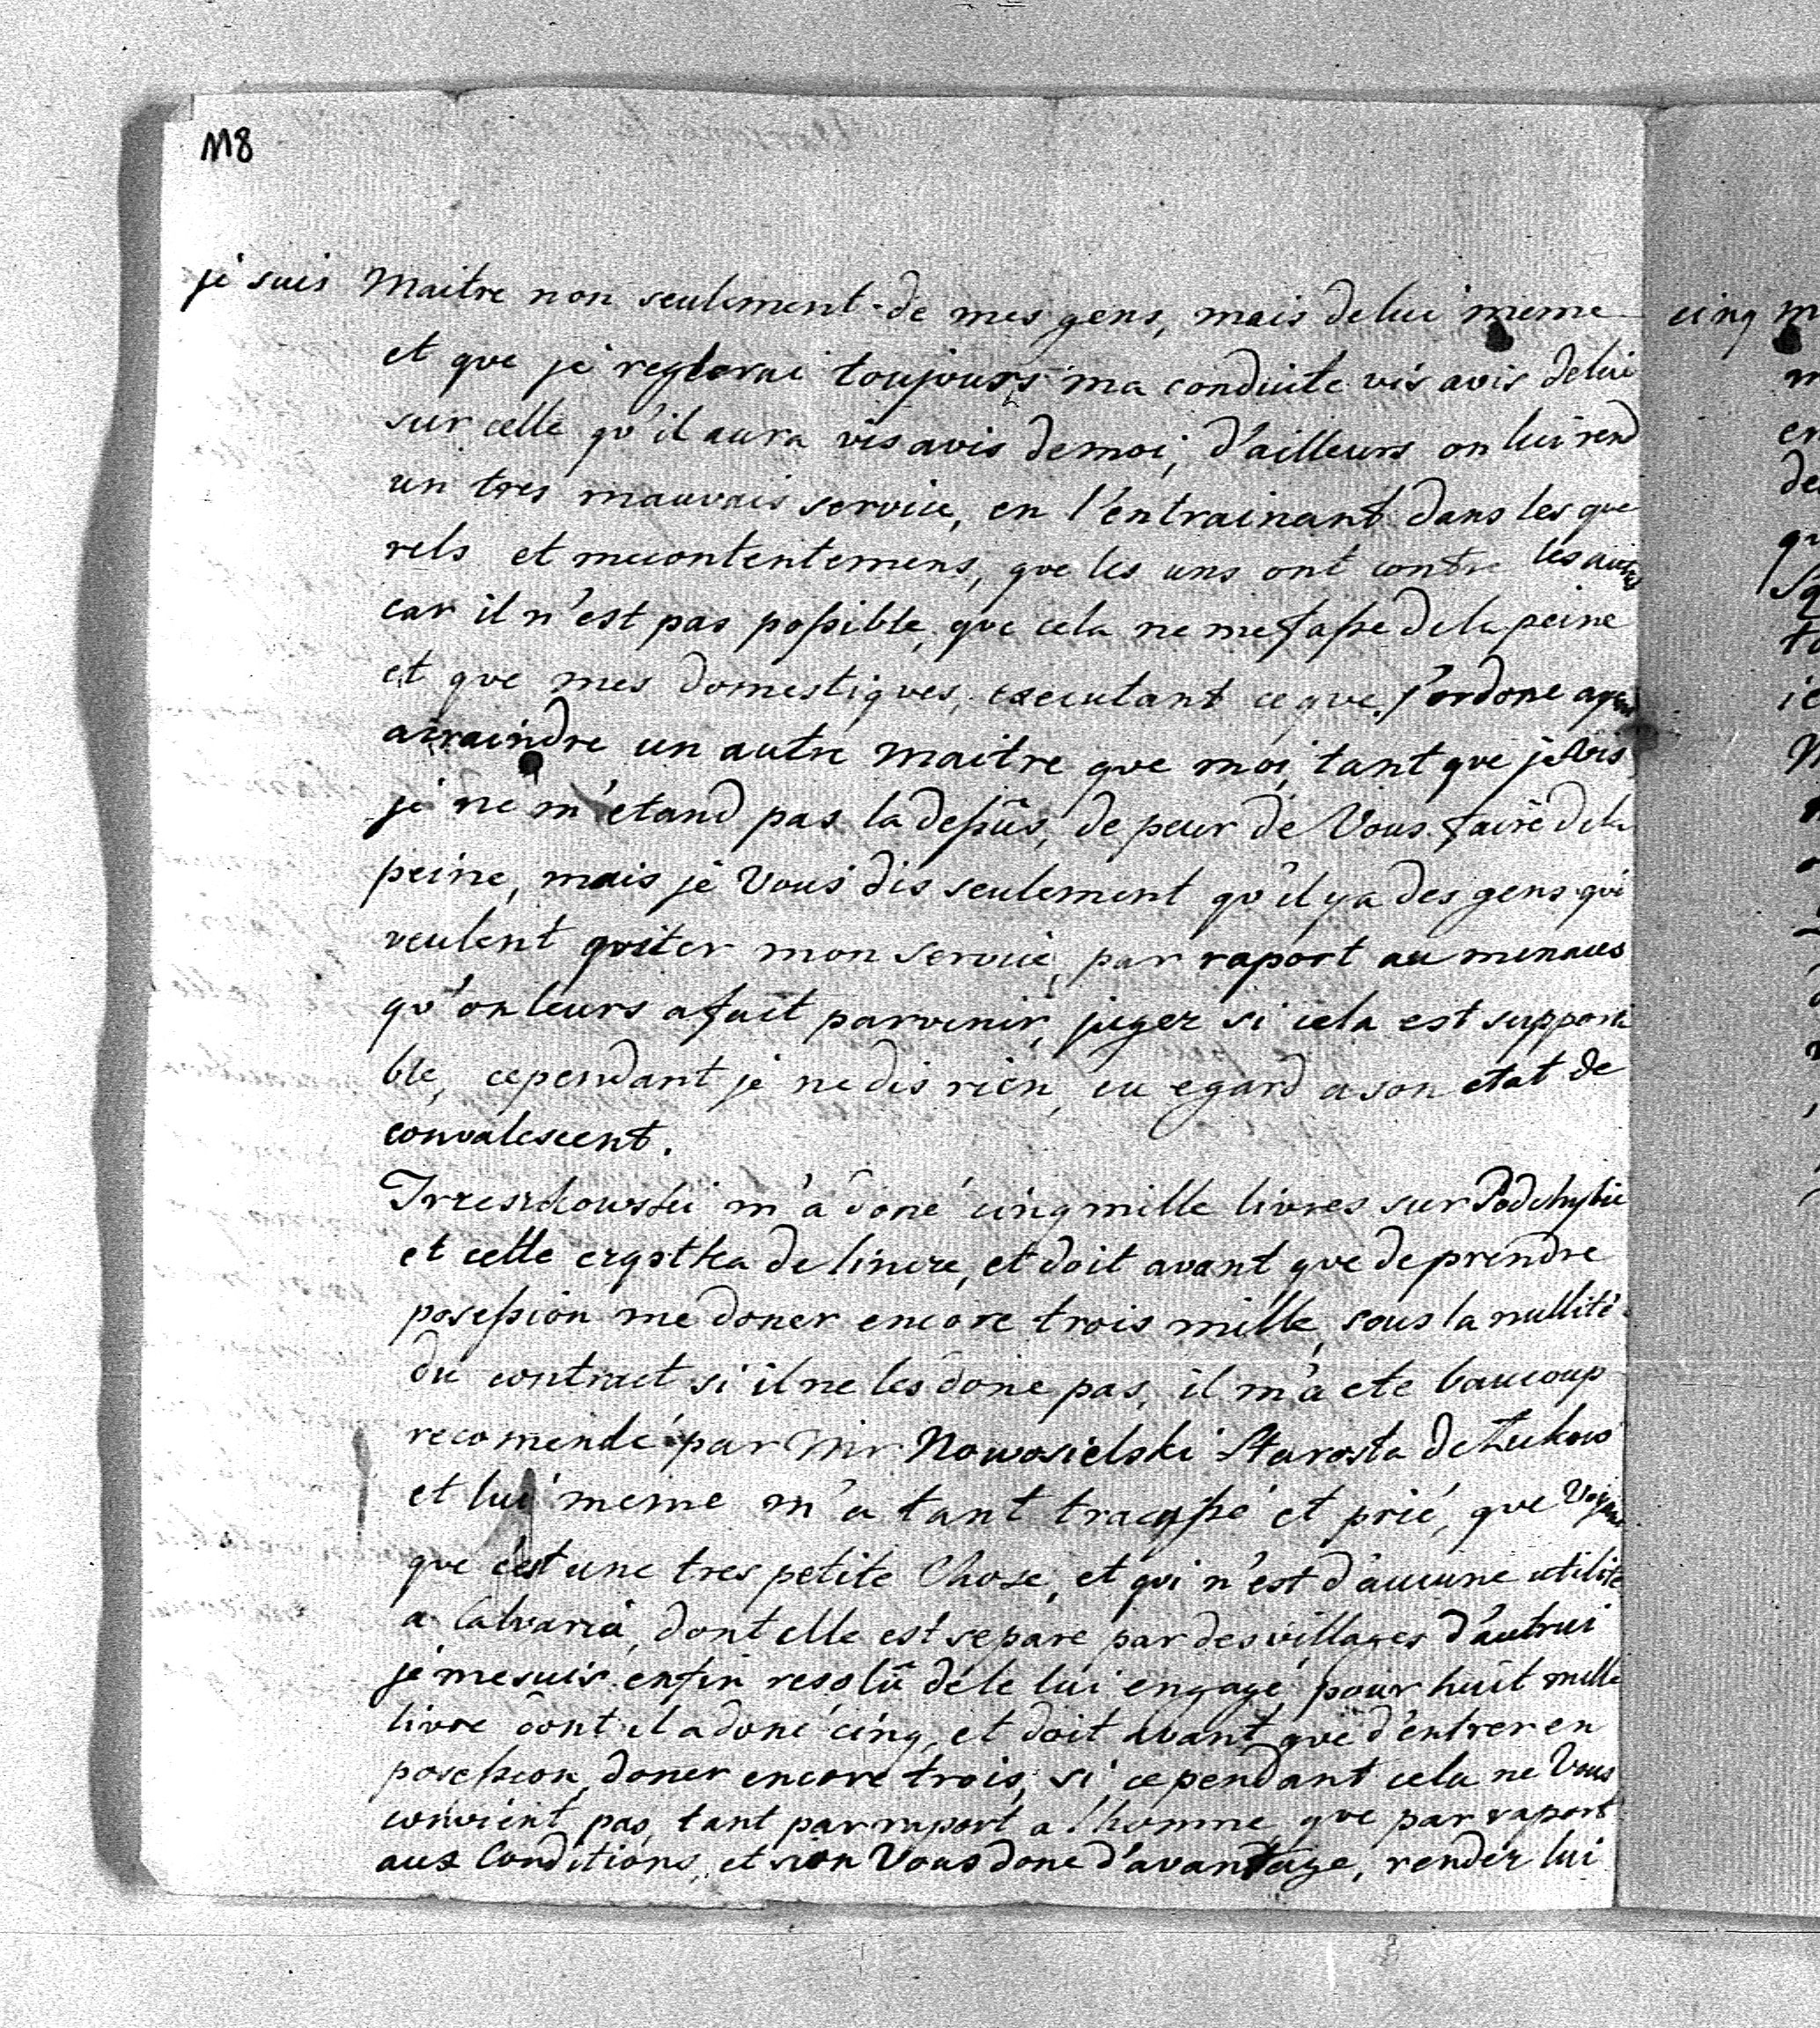 118
je suis Maitre non seulement de mes gens, mais de lui meme
et que je reglerai toujours ma conduite vis avis de lui
sur celle qu'il aura vis avis de moi, d'ailleurs on lui rend
un tres mauvais service, en l'entrainant dans les que
rels et mecontentemens, que les uns ont contre les autres
car il n'est pas possible, que cela ne me fasse de la peine
et que mes domestiques, executant ce que j'ordone ayent
a craindre un autre maitre que moi, tant que je vis,
je ne m'etand pas la dessûs, de peur de Vous faire de la
peine, mais je Vous dis seulement qu'il y a des gens qui
veulent quiter mon service, par raport au menaces
qu'on leurs a fait parvenir, jugez si cela est supporta
ble, cependant je ne dis rien, eu egard a son etat de
convalescent.
m'a doné cinq mille livres sur Podchybie
et cette czastka de et doit avant que de prendre
posession me doner encore trois mille, sous la nullité
du contract si il ne les done pas, il m'a ete baucoup
recomendé par Mr Nowosielski Starosta de Łukow
et lui meme m'a tant tracassé et prié, que voyant
que c'est une tres petite Chose, et qui n'est d'aucune utilité
a Calvaria, dont elle est separe par des villages d'autrui
je me suis enfin resolû de le lui engagé pour huit mille
livre dont il a doné cinq, et doit avant que d'entrer en
posession, doner encore trois, si cependant cela ne Vous
convient pas, tant par raport a l'homme, que par raport
aux Conditions, et si on Vous done d'avantage, rendez lui
cinq